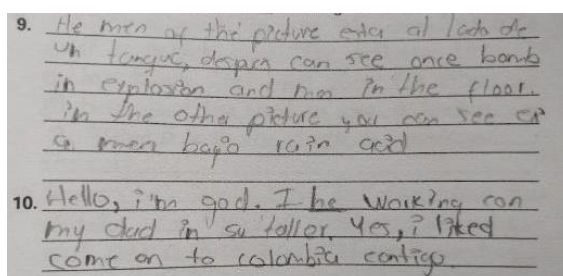 9. He men of the picture esta al lado de
un tanque, despues can see once bomb
in explosion and men in the floor.
in the other picture you can see
a men bagio rain acid
10. Hello, i'm god. I he working con
my dad in su taller, Yes, i liked
come on to colombia contigo